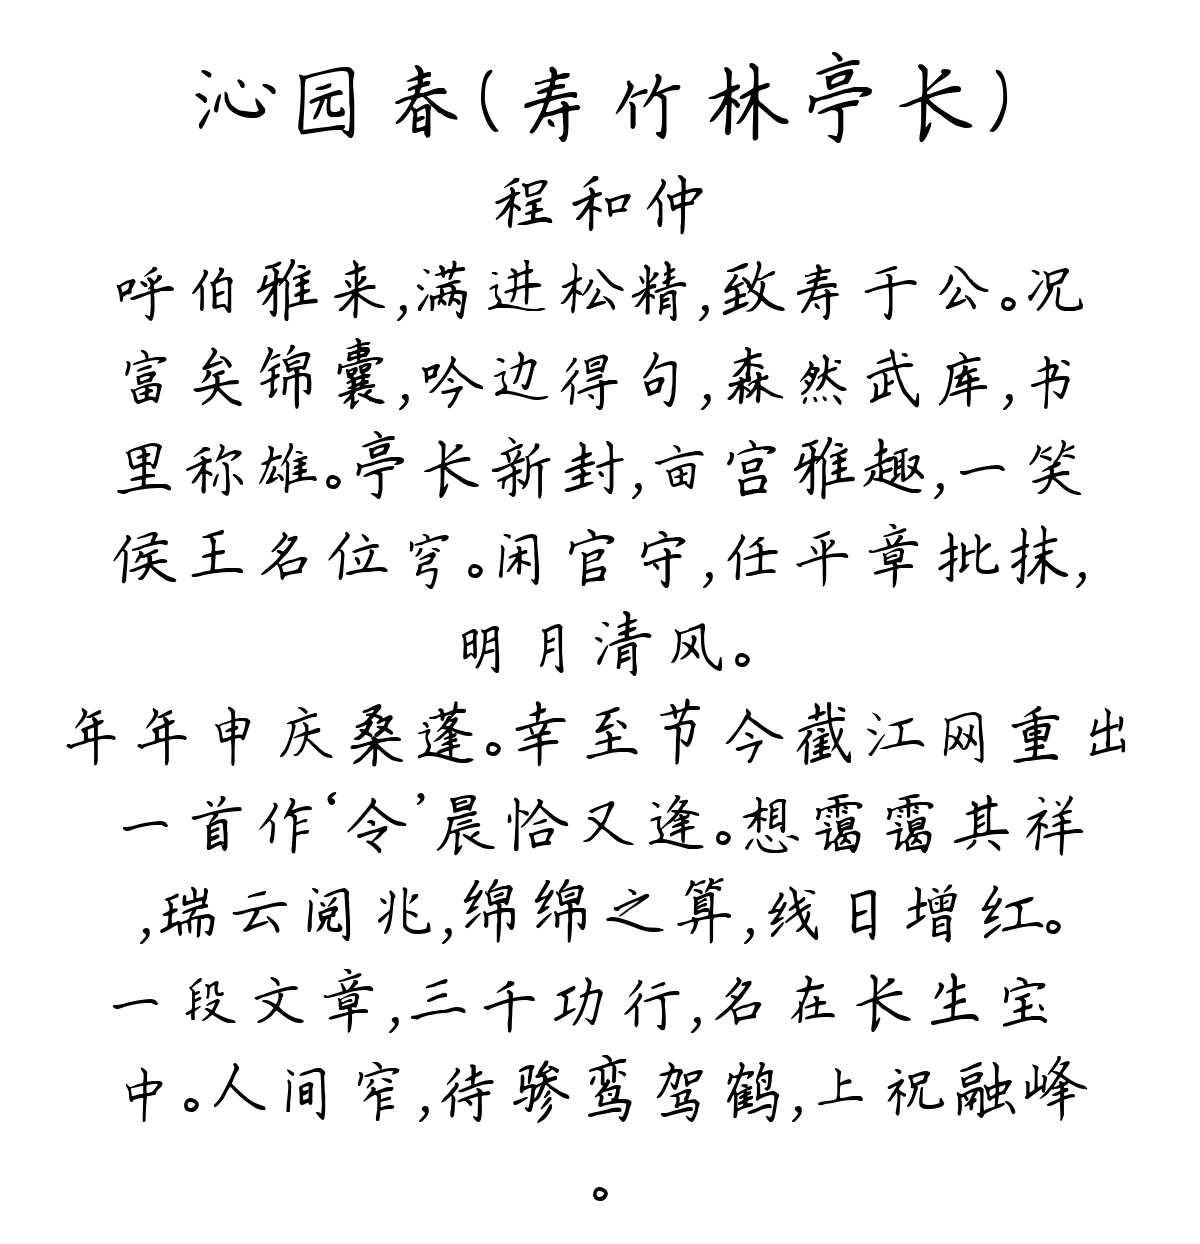 沁园春(寿竹林亭长)
程和仲
呼伯雅来,满进松精,致寿于公。况
富矣锦囊,吟边得句,森然武库,书
里称雄。亭长新封,亩宫雅趣,一笑
侯王名位穹。闲官守,任平章批抹,
明月清风。
年年申庆桑蓬。幸至节今截江网重出
一首作‘令’晨恰又逢。想霭霭其祥
,瑞云阅兆,绵绵之算,线日增红。
一段文章,三千功行,名在长生宝
中。人间窄,待骖鸾驾鹤,上祝融峰
。